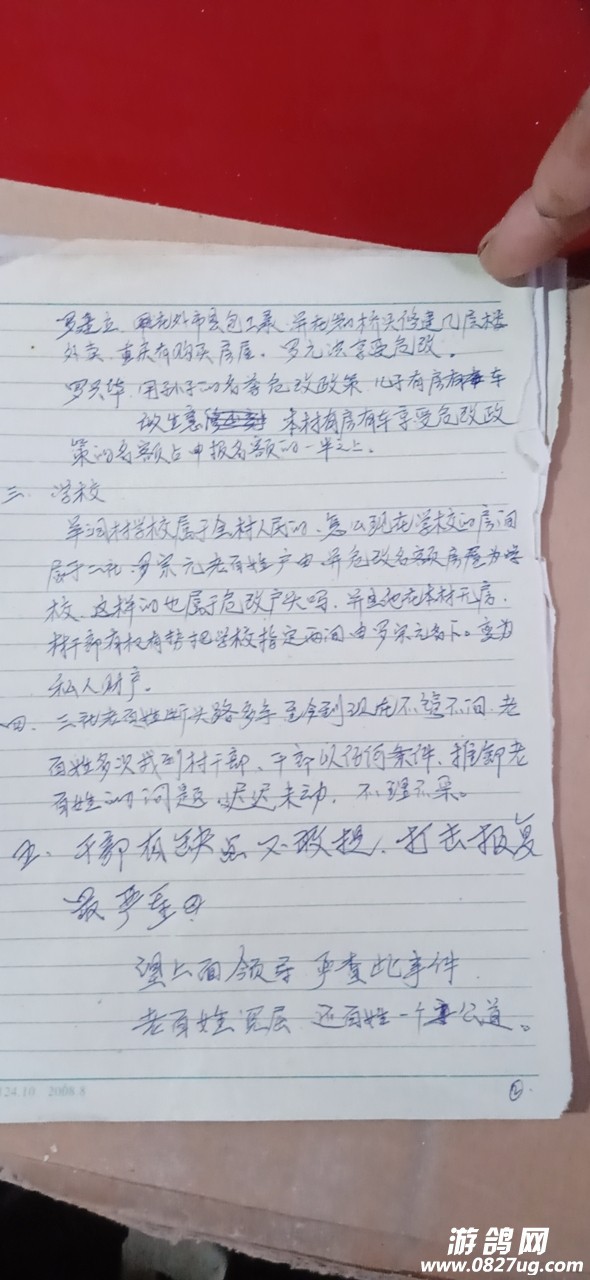 罗建立 在外市承包工程 并在 桥头修建几层楼
外卖，重庆有购买房屋。罗元洪享受危改。
罗兴华 用孙子的名享危改政策 儿子有房有车
做生意 本村有房有车享受危改政
策的名额占申报名额的一半之上。
三、学校
村学校属于全村人民的，怎么现在学校的房间
属于二社 罗宗元老百姓户由 并危改名额房屋为学
校，这样的也属于危改户头吗，并且他在本村无房，
村干部有权有势把学校指定两间由罗宗元名下。变为
私人财产。
四、三社老百姓断头路多年至今到现在不管不问，老
百姓多次找到村干部，干部以任何条件，推卸老
百姓的问题，迟迟未动，不理不采。
五、干部有缺点不敢提，打击报复
最严重
望上面领导 严查此事件
老百姓 还百姓一个公道。
124.10 2008.8
②
游鸽网
www.0827ug.com